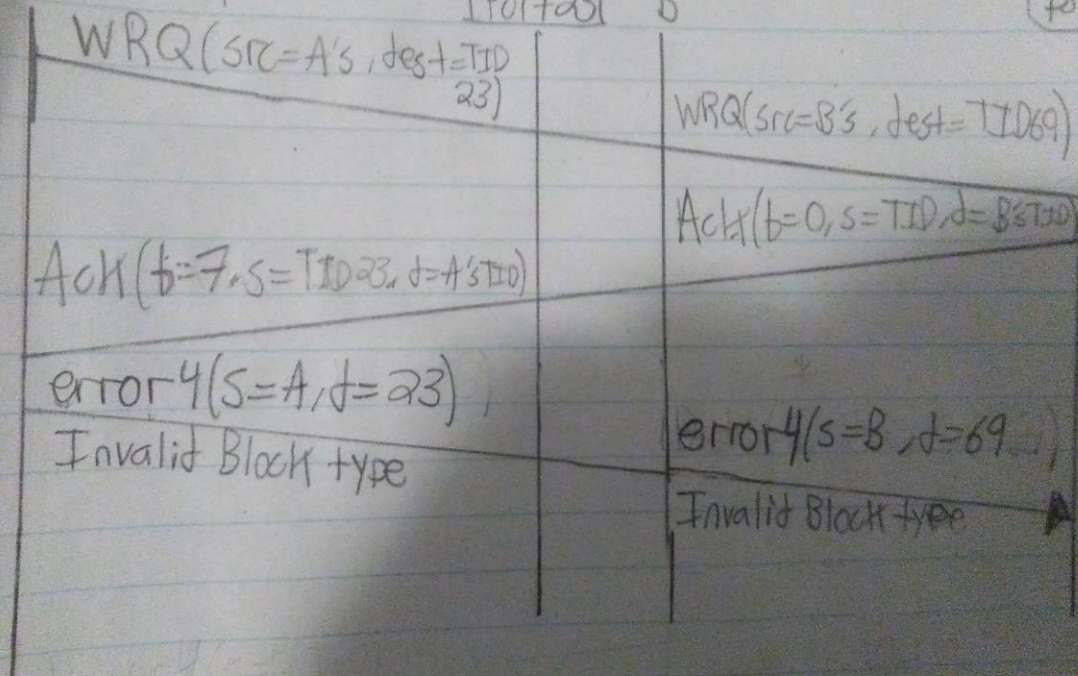 WRQ(src=A's, dest=TID
23)
WRQ(src=B's, dest=TID69)
Ack(b=0, s=TID, d=B'sTID)
Ack(b=7, s=TID23, d=A'sTID)
error4(s=A, d=23)
error4(s=B, d=69
Invalid Block type
Invalid Block type